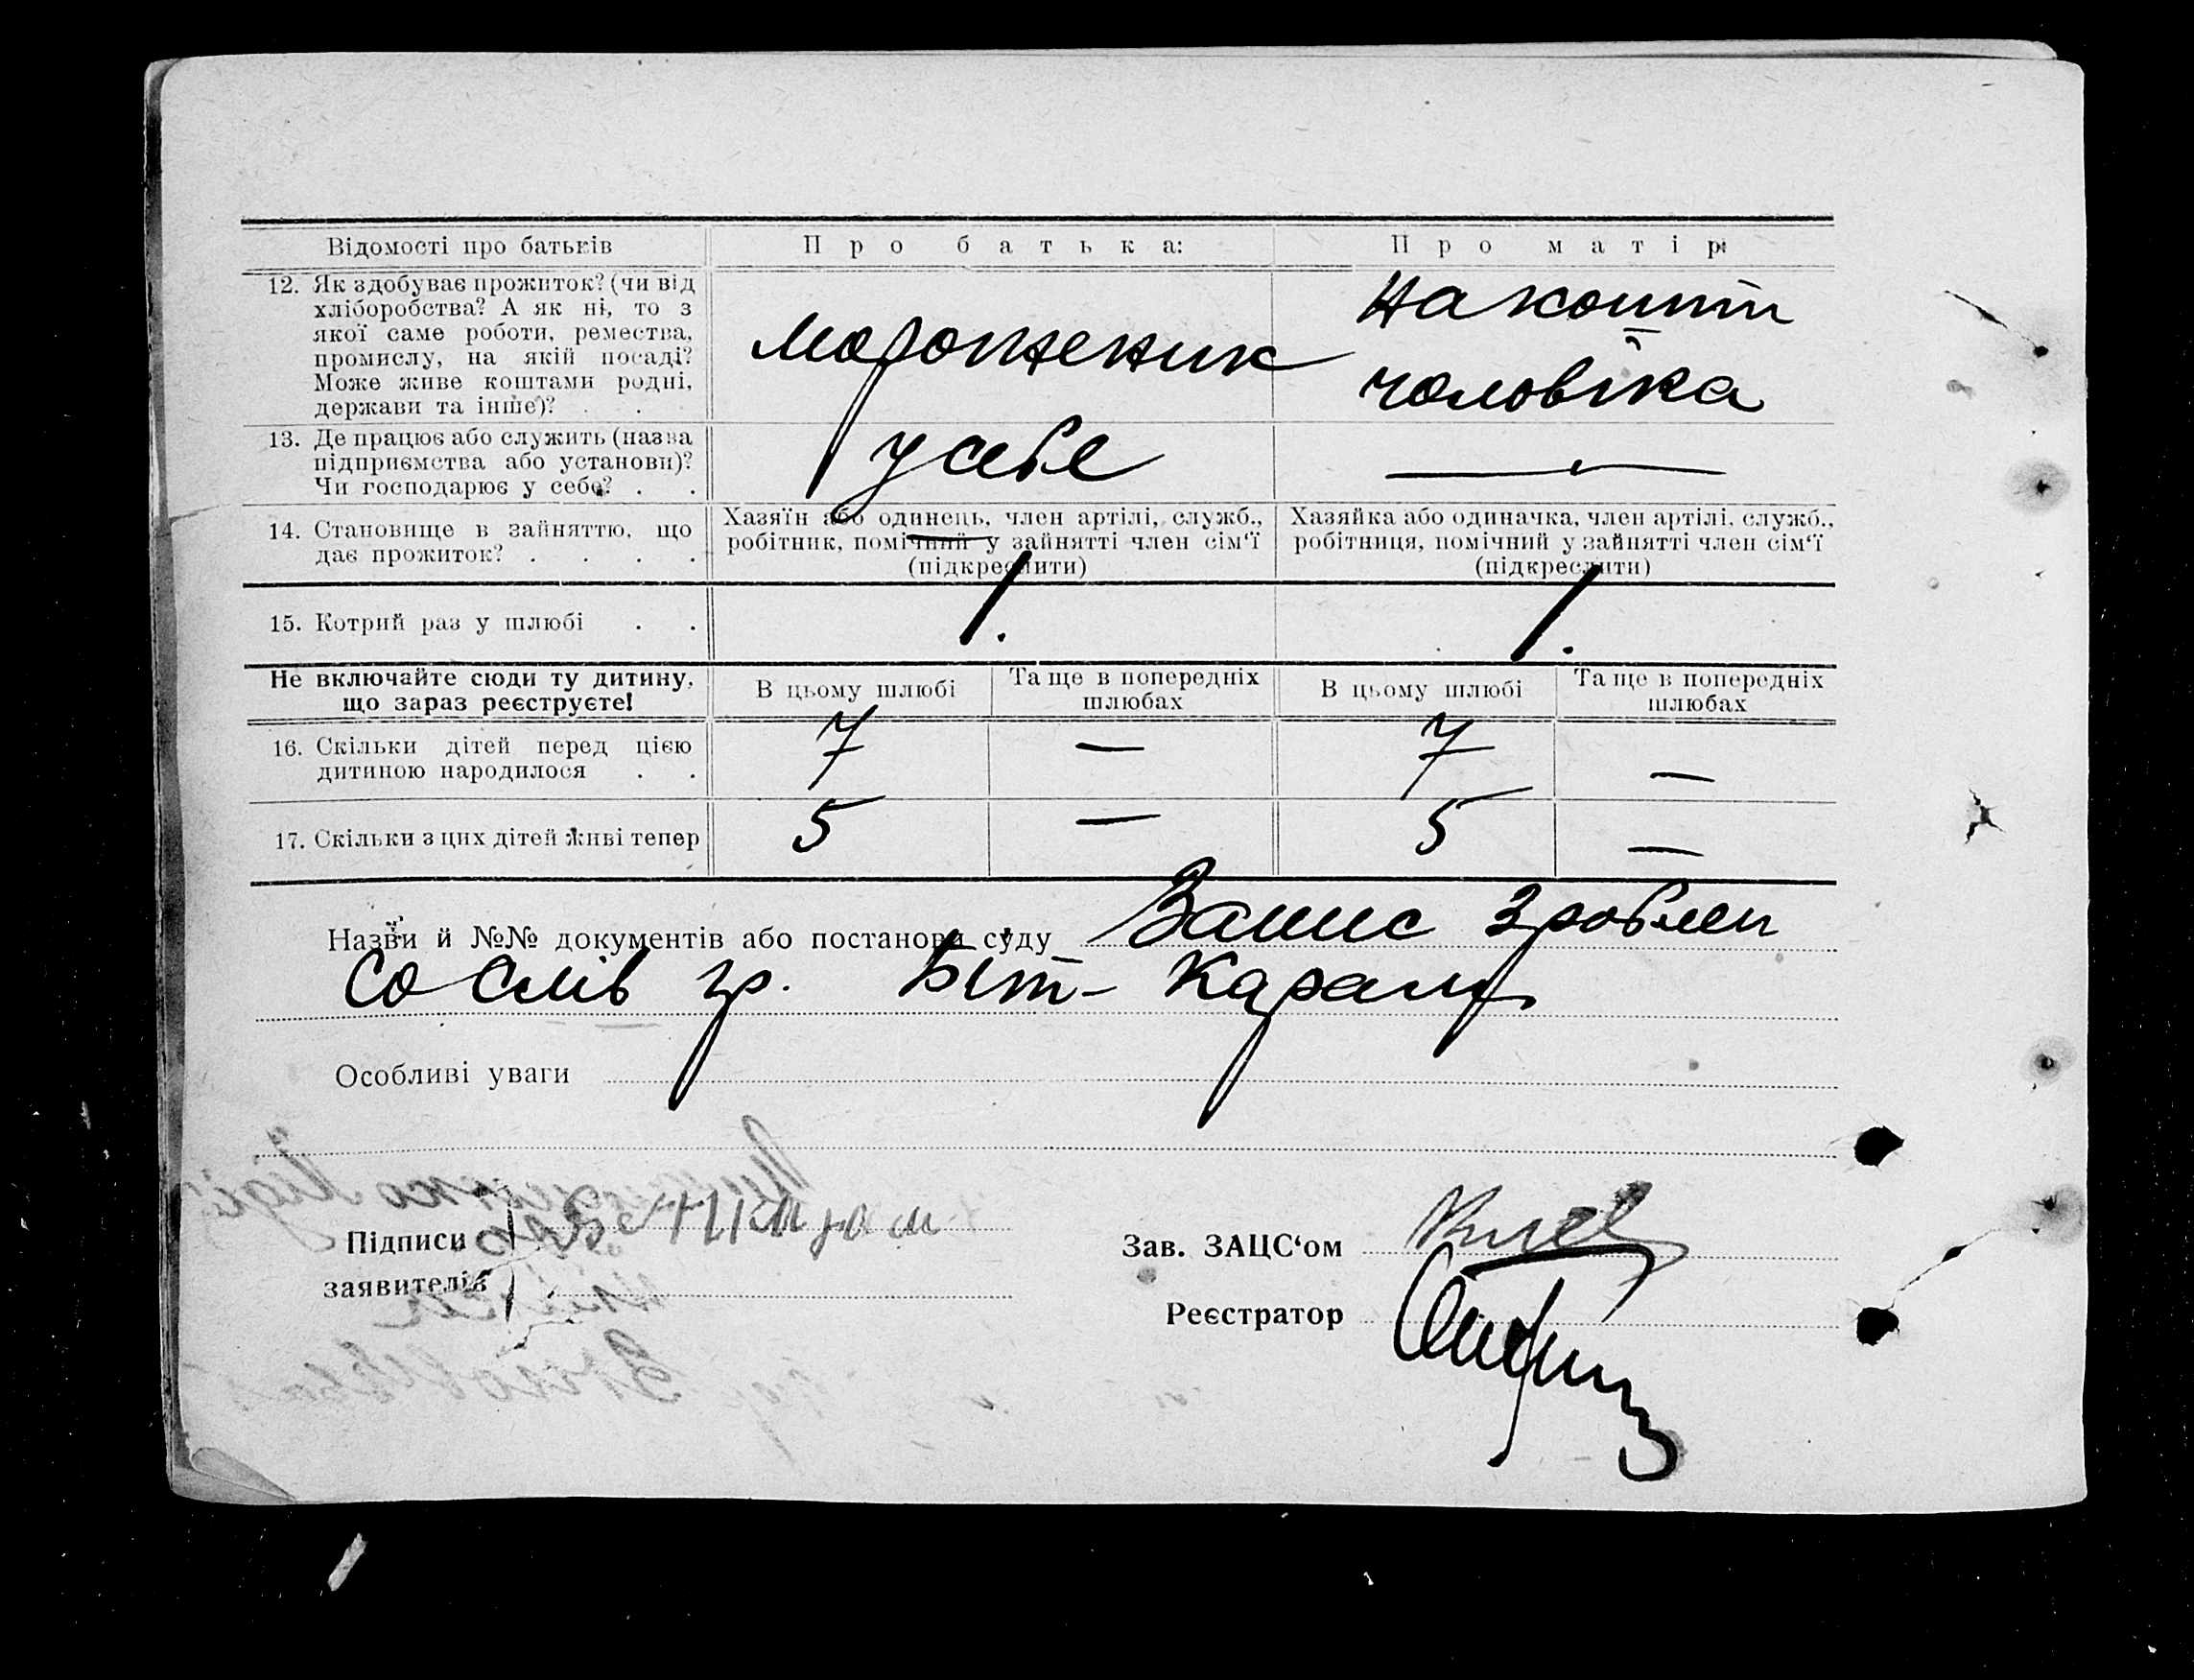 Відомості про батьків
Про батька:
Про матір:
12. Як здобуває прожиток? (чи від
хліборобства? А як ні, то з
якої саме роботи, ремества,
промислу, на якій посаді?
Може живе коштами родні,
держави та інше)? . .
Мороженик
На кошти
чоловіка
13. Де працює або служить (назва
підприємства або установи)?
Чи господарює у себе? . .
у себе
14. Становище в зайняттю, що
дає прожиток? . . . .
Хазяїн або одинець, член артілі, служб.,
робітник, помічний у зайнятті член сім‘ї
(підкреслити)
Хазяйка або одиначка, член артілі, служб.,
робітниця, помічний у зайнятті член сім‘ї
(підкреслити)
15. Котрий раз у шлюбі . .
1.
1.
Не включайте сюди ту дитину,
що зараз реєструєте!
В цьому шлюбі
Та ще в попередніх
шлюбах
В цьому шлюбі
Та ще в попередніх
шлюбах
16. Скільки дітей перед цією
дитиною народилося . .
7
—
7
—
17. Скільки з цих дітей живі тепер
5
—
5
—
Назви й №№ документів або постанови суду Запис зроблен
со слів гр. Біт-
Особливі уваги
Підписи
заявителів
Зав. ЗАЦС‘ом
Реєстратор